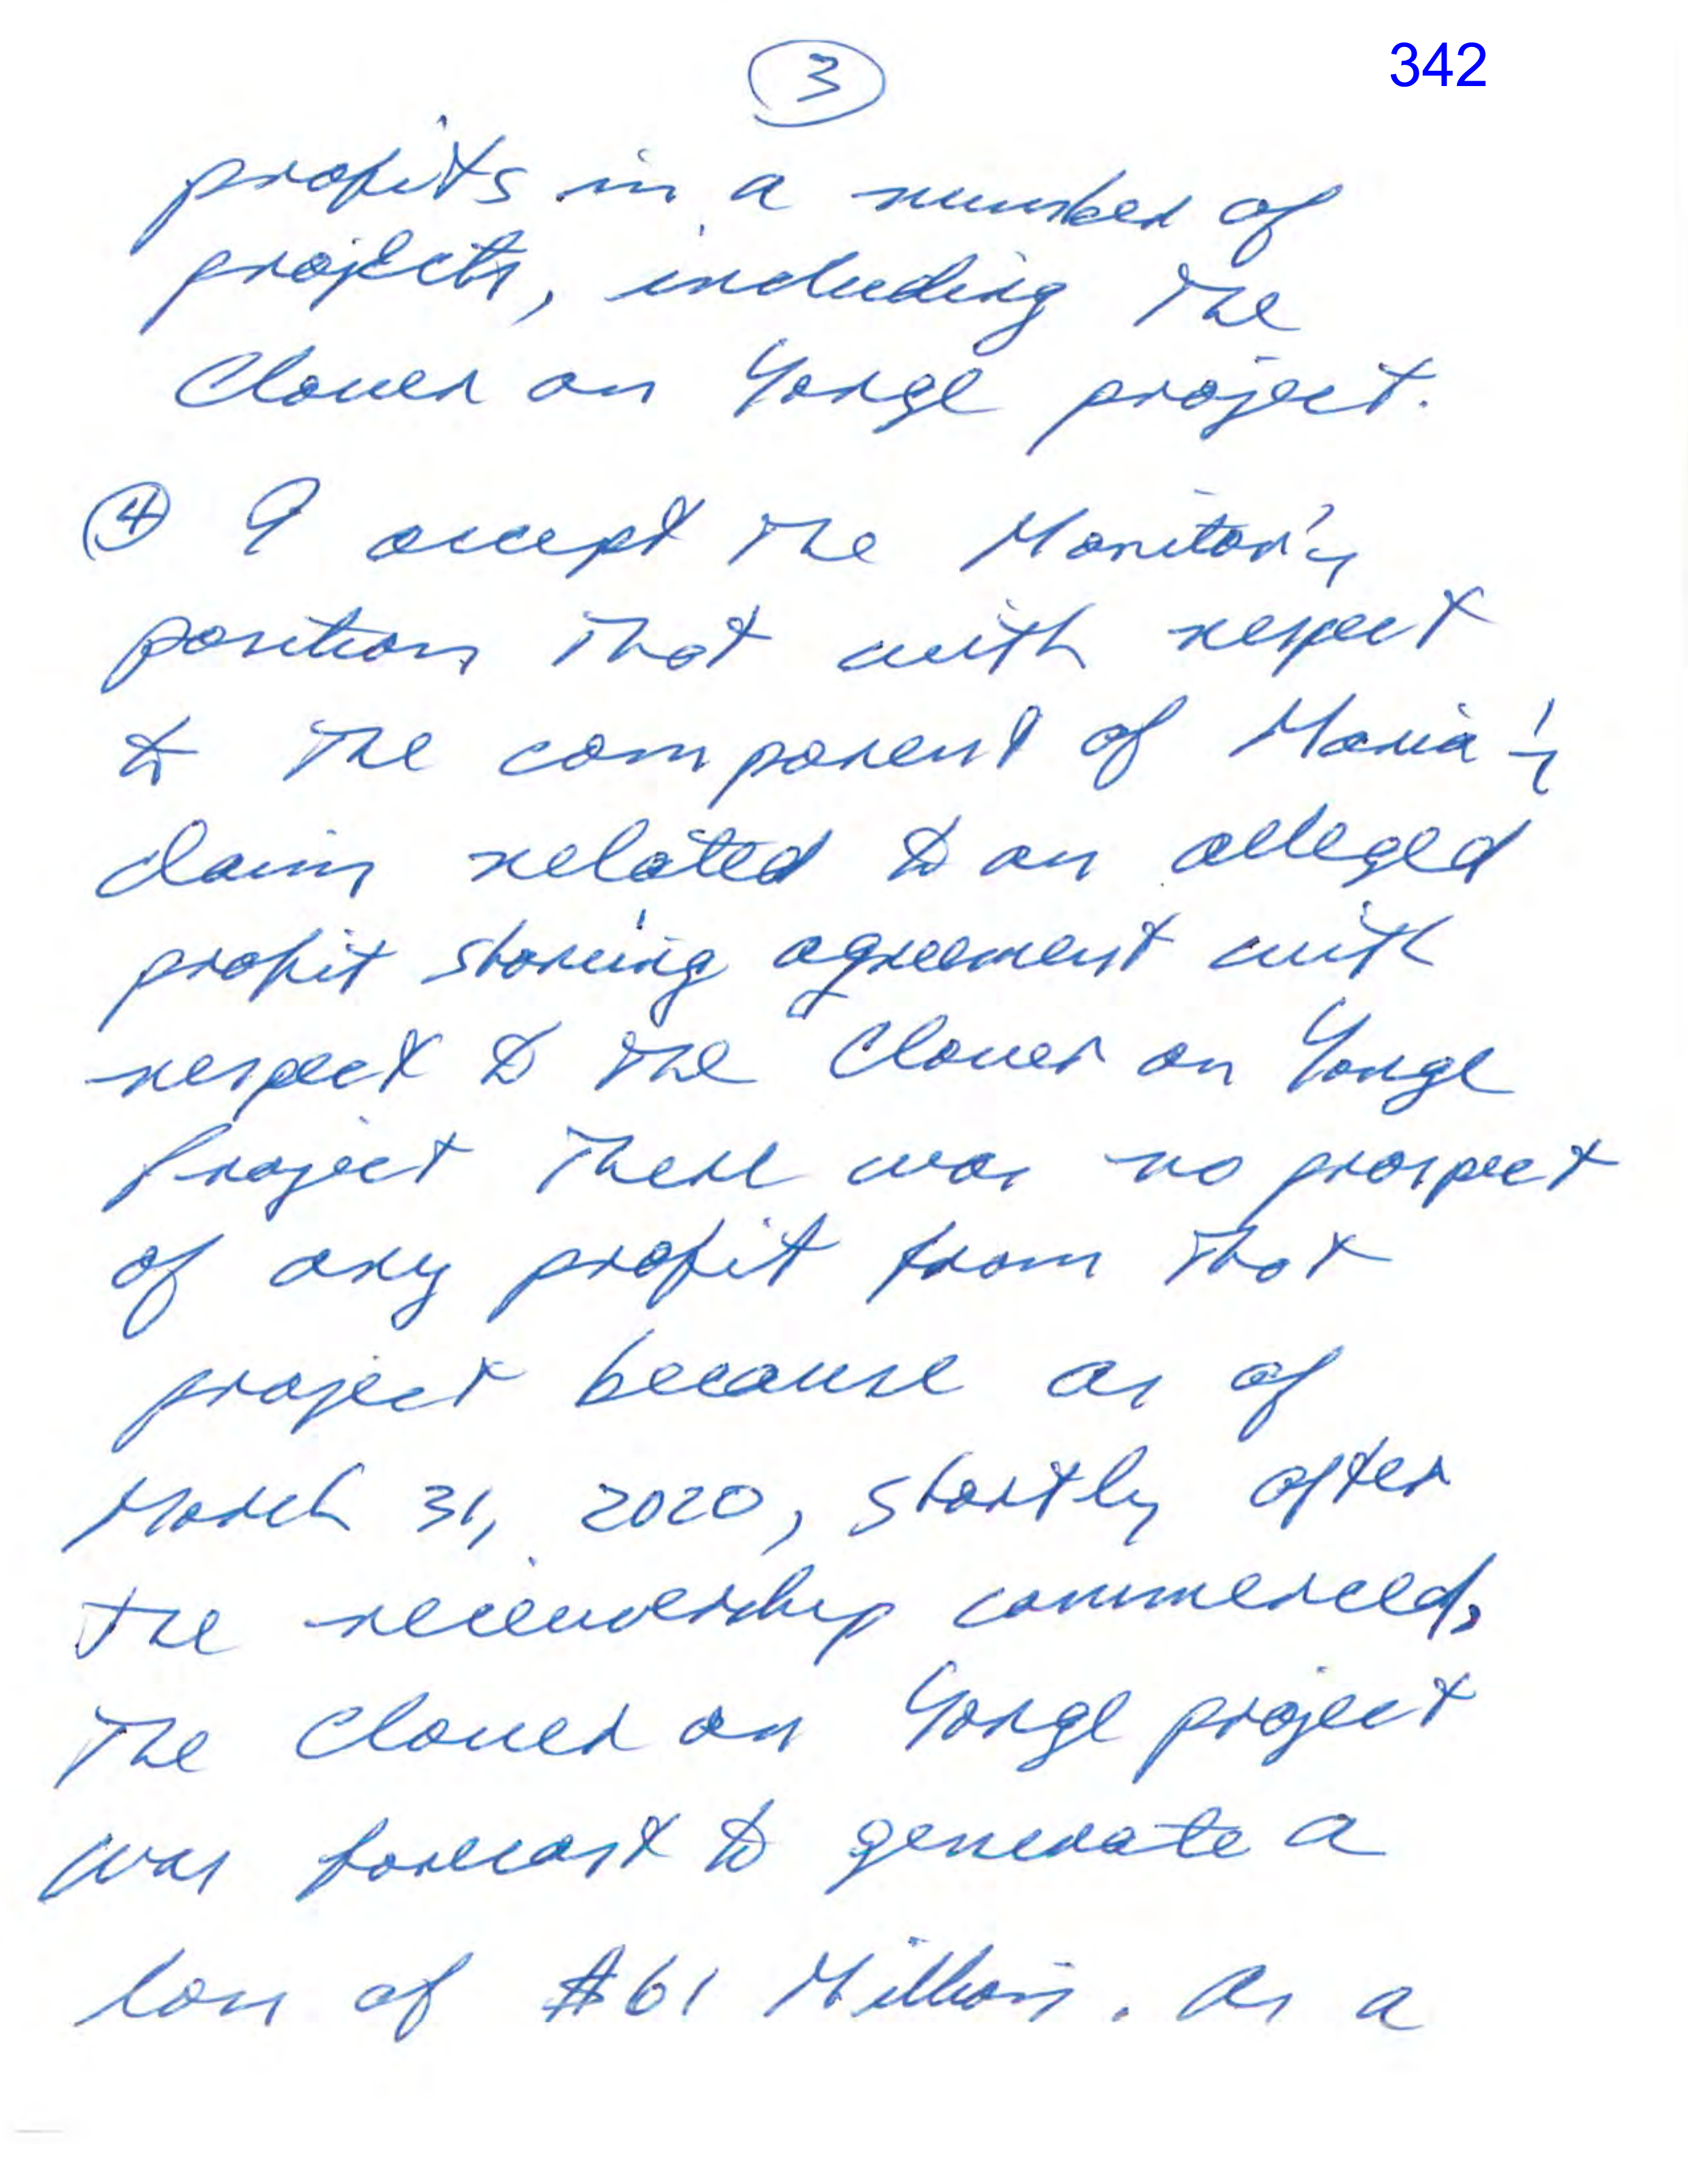 3
342
profits in a number of
projects, including the
Clover on Yonge project.
4 I accept the Monitor's
position that with respect
to the component of Maria's
claim related to an alleged
profit sharing agreement with
respect to the Clover on Yonge
Project there was no prospect
of any profit from that
project because as of
March 31, 2020, shortly after
the receivership commenced,
the Clover on Yonge project
was forecast to generate a
loss of $61 Million. As a